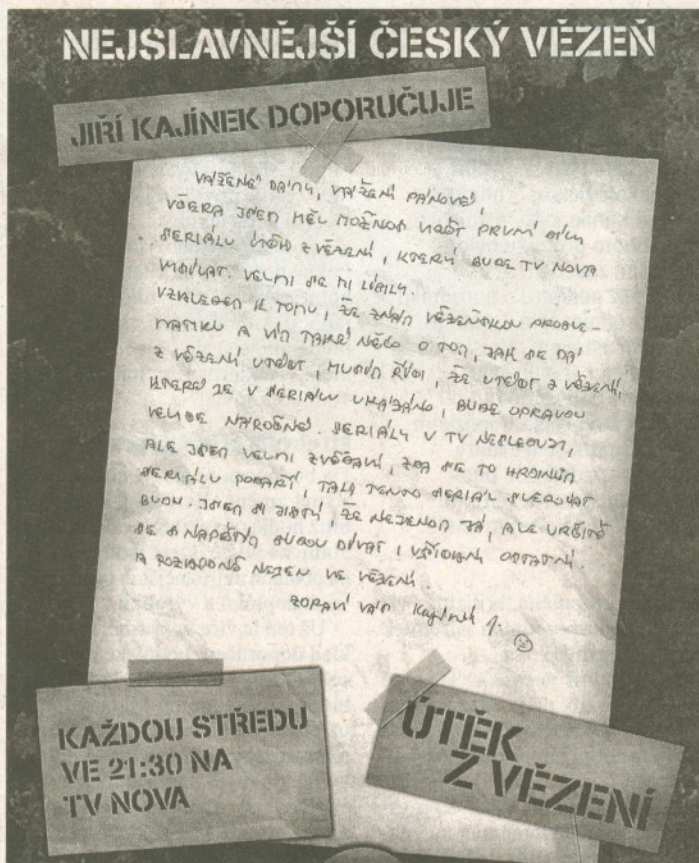 NEJSLAVNĚJŠÍ ČESKÝ VĚZEŇ
JIŘÍ KAJÍNEK DOPORUČUJE
VÁŽENÉ DÁMY, VÁŽENÍ PÁNOVÉ,
VČERA JSEM MĚL MOŽNOST VIDĚT PRVNÍ DÍLY
SERIÁLU ÚTĚK Z VĚZENÍ, KTERÝ BUDE TV NOVA
VYSÍLAT. VELMI SE MI LÍBILY.
VZHLEDEM K TOMU, ŽE ZNÁM VĚZEŇSKOU PROBLE-
MATIKU A VÍM TAKÉ NĚCO O TOM, JAK SE DÁ
Z VĚZENÍ UTÉCT, MUSÍM ŘÍCI, ŽE UTÉCT Z VĚZENÍ,
KTERÉ JE V SERIÁLU UKÁZÁNO, BUDE OPRAVDU
VELICE NÁROČNÉ. SERIÁLY V TV NESLEDUJI,
ALE JSEM VELMI ZVĚDAVÝ, ZDA SE TO HRDINŮM
SERIÁLU PODAŘÍ, TAK TENTO SERIÁL SLEDOVAT
BUDU. JSEM SI JISTÝ, ŽE NEJENOM JÁ, ALE URČITĚ
SE S NAPĚTÍM BUDOU DÍVAT I VŠICHNI OSTATNÍ.
A ROZHODNĚ NEJEN VE VĚZENÍ.
ZDRAVÍ VÁS Kajínek J.
KAŽDOU STŘEDU
VE 21:30 NA
TV NOVA
ÚTĚK
Z VĚZENÍ